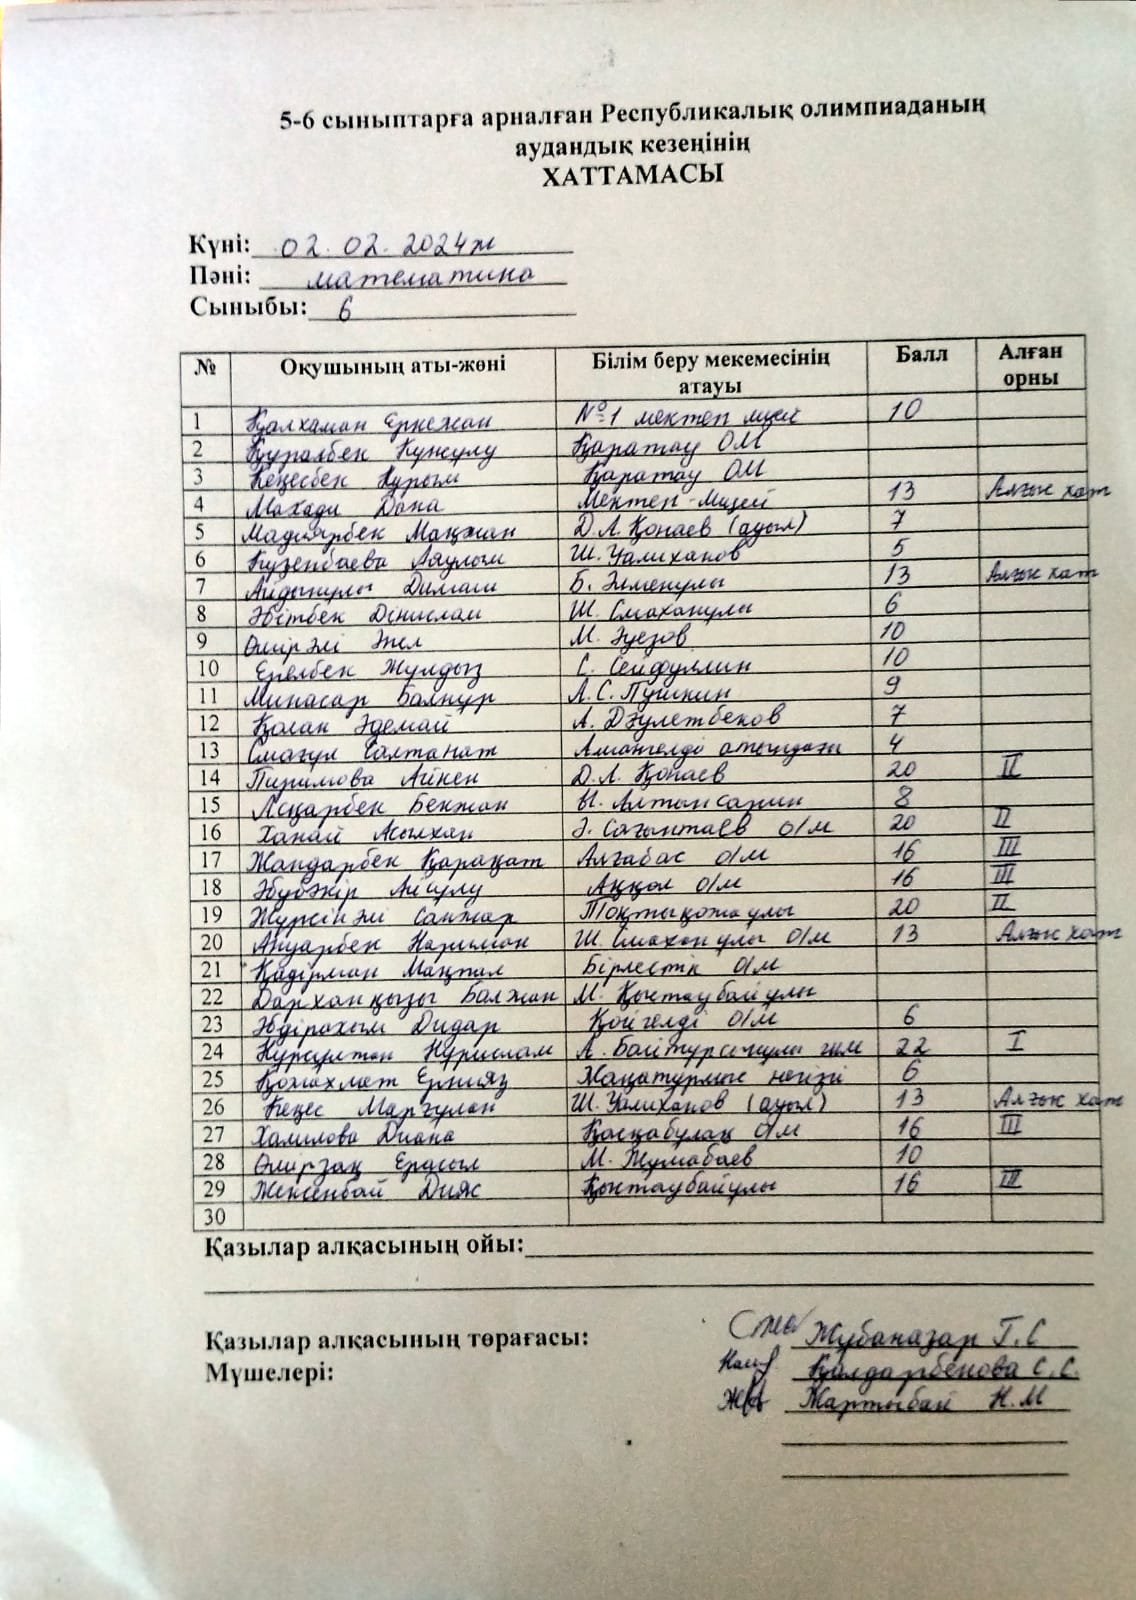 5-6 сыныптарға арналған Республикалық олимпиаданың
аудандық кезеңінің
ХАТТАМАСЫ
Күні: 02.02.2024ж
Пәні: математика
Сыныбы: 6
№ Оқушының аты-жөні Білім беру мекемесінің атауы Балл Алған орны
1 Қалхаман Еркежан №1 мектеп лицей 10
2 Құралбек Күнсұлу Қаратау ОМ
3 Кеңесбек Нұрым Қаратау ОМ
4 Махади Дана Мектеп-Лицей 13 Алғыс хат
5 Мадиярбек Маржан Д.А.Қонаев (ауыл) 7
6 Күзенбаева Аяулым Ш.Уалиханов 5
7 Айдынұлы Димаш Б. Әлменұлы 13 Алғыс хат
8 Әбітбек Дінислам Ш. Смаханұлы 6
9 Өмірәлі Әсел М. Әуезов 10
10 Ерелбек Жұлдыз С. Сейфуллин 10
11 Минасар Балнұр А.С.Пушкин 9
12 Қасан Әдемай А. Дәулетбеков 7
13 Смағұл Салтанат Амангелді атындағы 4
14 Пиримова Айкен Д.А. Қонаев 20 II
15 Асқарбек Бекжан Ы. Алтынсарин 8
16 Ханай Асылхан Ә. Сағынтаев о/м 20 II
17 Жандарбек Қарақат Алғабас о/м 16 III
18 Әбубәкір Айсұлу Аққол о/м 16 III
19 Жүрсінәлі Санжар Тоқтықожаұлы 20 II
20 Ануарбек Нариман Ш. Смаханұлы о/м 13 Алғыс хат
21 Қадірман Мақпал Бірлестік о/м
22 Дарханқызы Балжан М. Қыстаубайұлы
23 Әбдірахым Дидар Қойгелді о/м 6
24 Нурсұлтан Нұрислам А. Байтұрсынұлы гим 22 I
25 Қожахмет Ернияз Жаңатұрмыс негізгі 6
26 Кеңес Марғұлан Ш.Уалиханов (ауыл) 13 Алғыс хат
27 Халилова Диана Қасқабұлақ о/м 16 III
28 Өмірзақ Ерасыл М. Жұмабаев 10
29 Жексенбай Дияс Қыстаубайұлы 16 III
30
Қазылар алқасының ойы:
Қазылар алқасының төрағасы: Жұбаназар Г.С
Мүшелері: Қалдарбекова С.С.
Жартыбай Н.М